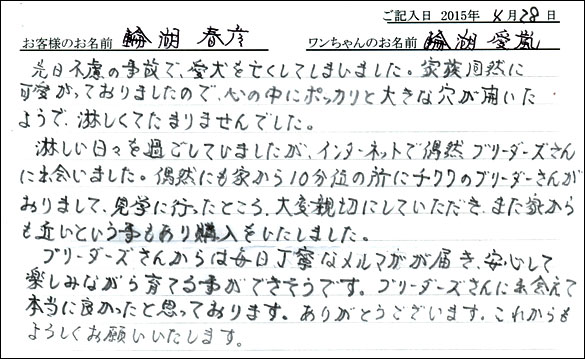 ご記入日 2015年 4月28日
お客様のお名前 輪湖 春彦 ワンちゃんのお名前 輪湖 愛嵐
先日不慮の事故で、愛犬を亡くしてしまいました。家族同然に
可愛がっておりましたので、心の中にポッカリと大きな穴が開いた
ようで、淋しくてたまりませんでした。
淋しい日々を過ごしていましたが、インターネットで偶然ブリーダーズさん
に出会いました。偶然にも家から10分位の所にチワワのブリーダーさんが
おりまして、見学に行ったところ、大変親切にしていただき、また家から
も近いという事もあり購入をいたしました。
ブリーダーズさんからは毎日丁寧なメルマガが届き、安心して
楽しみながら育てる事ができそうです。ブリーダーズさんに出会えて
本当に良かったと思っております。ありがとうございます。これからも
よろしくお願いいたします。